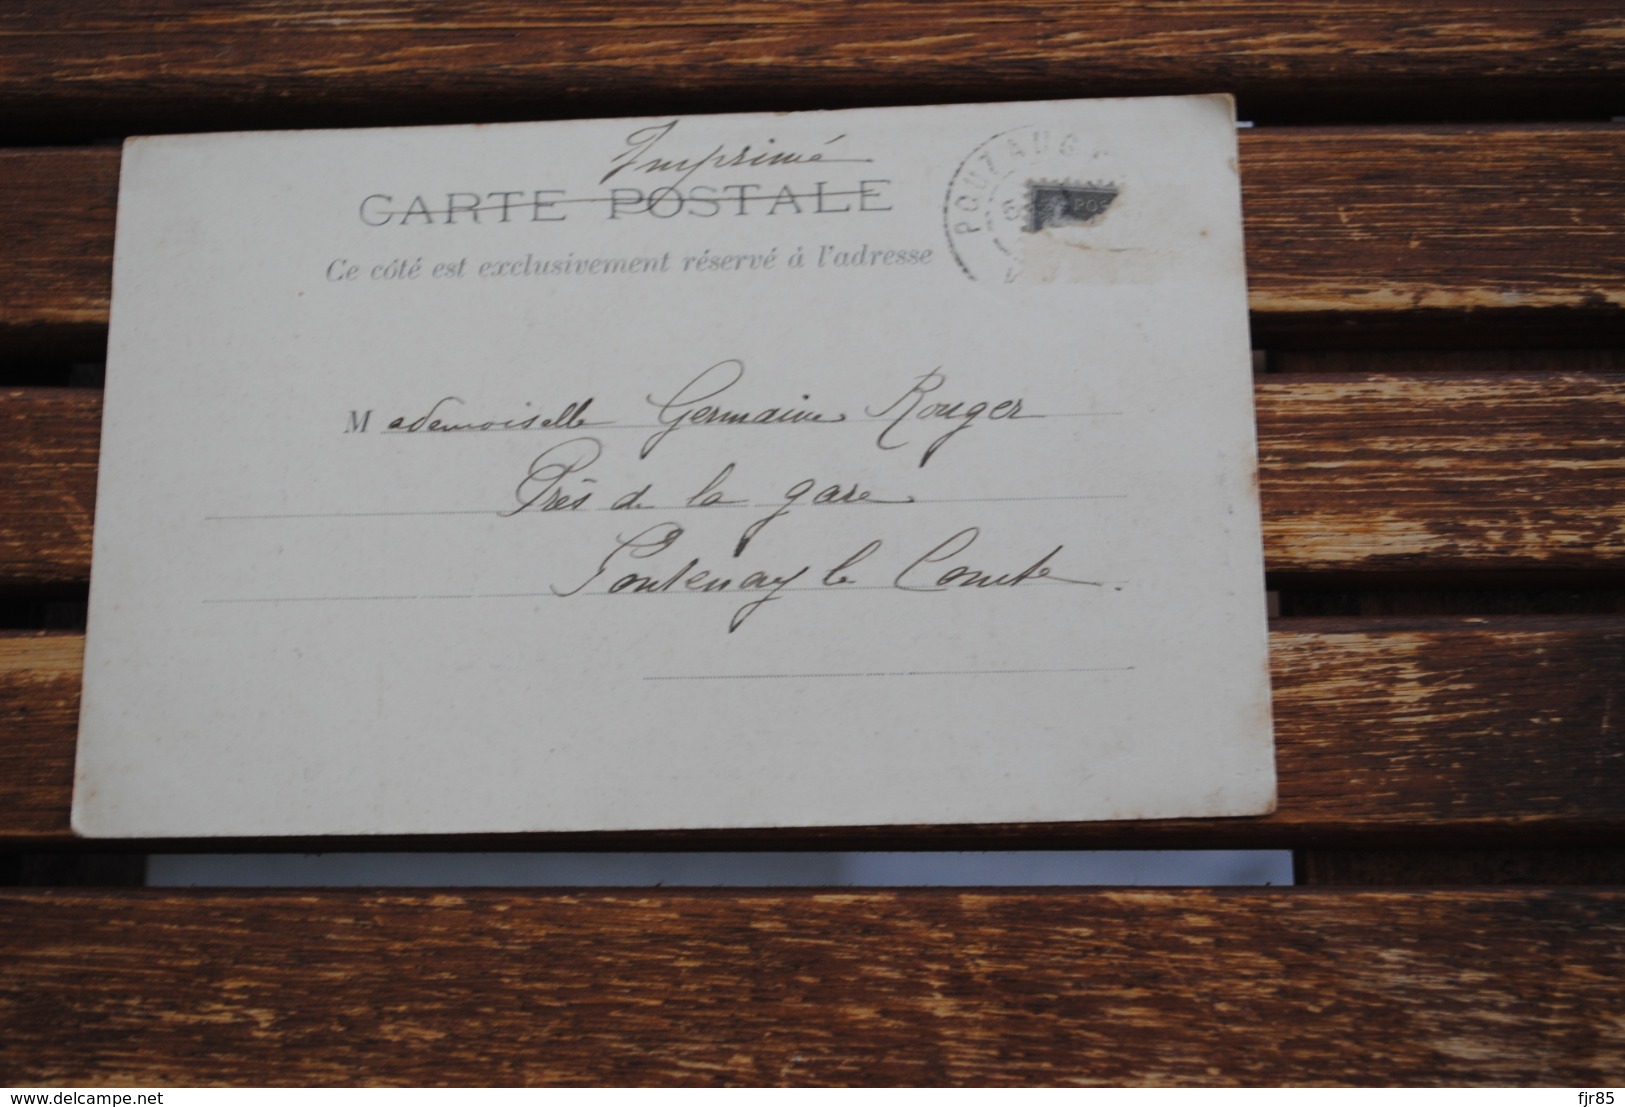 Imprimé
CARTE POSTALE
Ce côté est exclusivement réservé à l'adresse
POUZAUG
POS
Mademoiselle Germaine Rouger
Près de la gare
Fontenay le Comte.
delcampe.net
fjr85